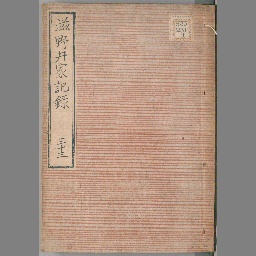 滋野井家記録
三十三